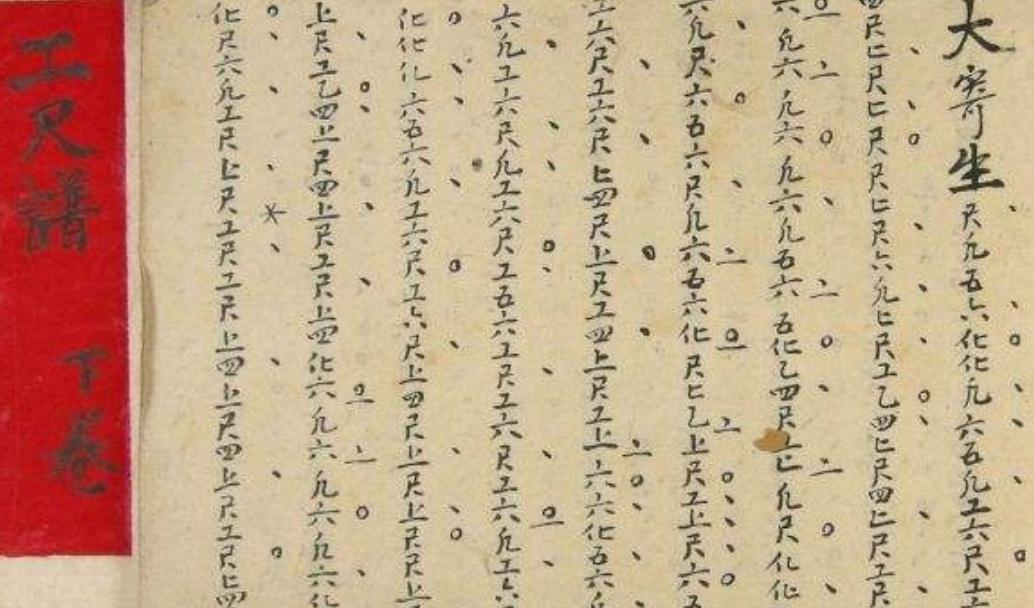 大寄生 尺凡五六仩仩凡六五凡工六尺工
四尺上尺上尺尺上尺六凡上尺工乙四上尺四上尺工尺
六凡六凡六凡六凡五六五仩乙四尺上凡尺仩仩
六凡尺六五六尺凡六五六仩尺上乙上尺工上尺六五
工六尺工六尺上四尺上尺工四上尺工上六六仩五六凡
六凡工六尺凡工六尺工五六工尺工六尺工六凡工六
仩仩六五六凡工六尺工六尺上四尺上尺上尺尺上
上尺工乙四上尺四上尺工尺上四仩六凡六凡六凡六仩
仩尺六凡工尺上尺工尺工尺上四上尺四上尺工尺上四
工尺譜 下卷